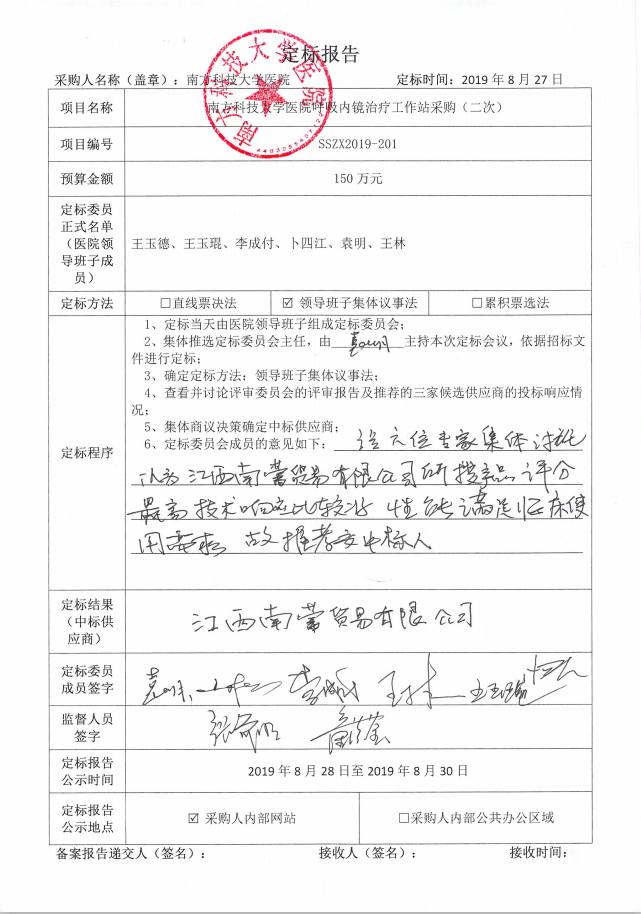 定标报告
采购人名称（盖章）：南方科技大学医院 定标时间：2019 年 8 月 27 日
项目名称 南方科技大学医院呼吸内镜治疗工作站采购（二次）
项目编号 SSZX2019-201
预算金额 150 万元
定标委员
正式名单
（医院领
导班子成
员）
王玉德、王玉琨、李成付、卜四江、袁明、王林
定标方法 ☐直线票决法 ☑ 领导班子集体议事法 ☐累积票选法
定标程序
1、定标当天由医院领导班子组成定标委员会；
2、集体推选定标委员会主任，由 袁明 主持本次定标会议，依据招标文
件进行定标；
3、确定定标方法：领导班子集体议事法；
4、查看并讨论评审委员会的评审报告及推荐的三家候选供应商的投标响应情
况；
5、集体商议决策确定中标供应商；
6、定标委员会成员的意见如下： 经六位专家集体讨论
认为江西南 贸易有限公司所投产品评分
最高 技术响应比较好 性能满足临床使
用要求 故推荐 中标人
定标结果
（中标供
应商）
江西南 贸易有限公司
定标委员
成员签字
袁明 李成付 王林 王玉琨
监督人员
签字
定标报告
公示时间
2019 年 8 月 28 日至 2019 年 8 月 30 日
定标报告
公示地点
☑ 采购人内部网站 ☐采购人内部公共办公区域
备案报告递交人（签名）： 接收人（签名）： 接收时间：
南方科技大学医院